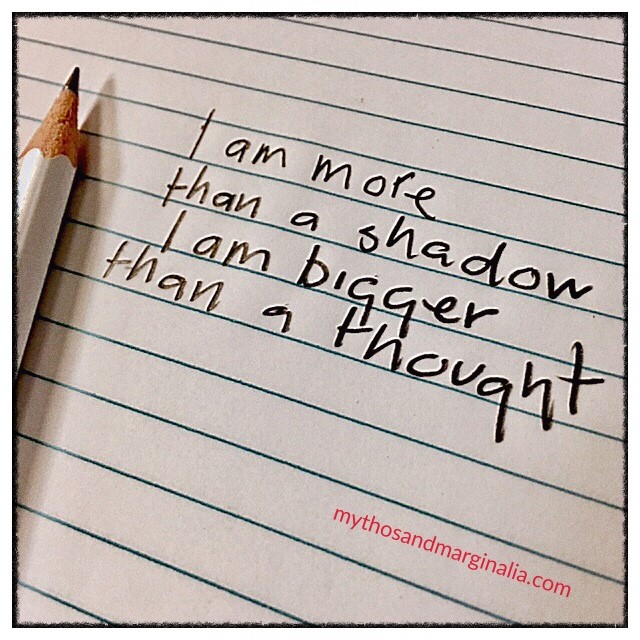 I am more
than a shadow
I am bigger
than a thought
mythosandmarginalia.com